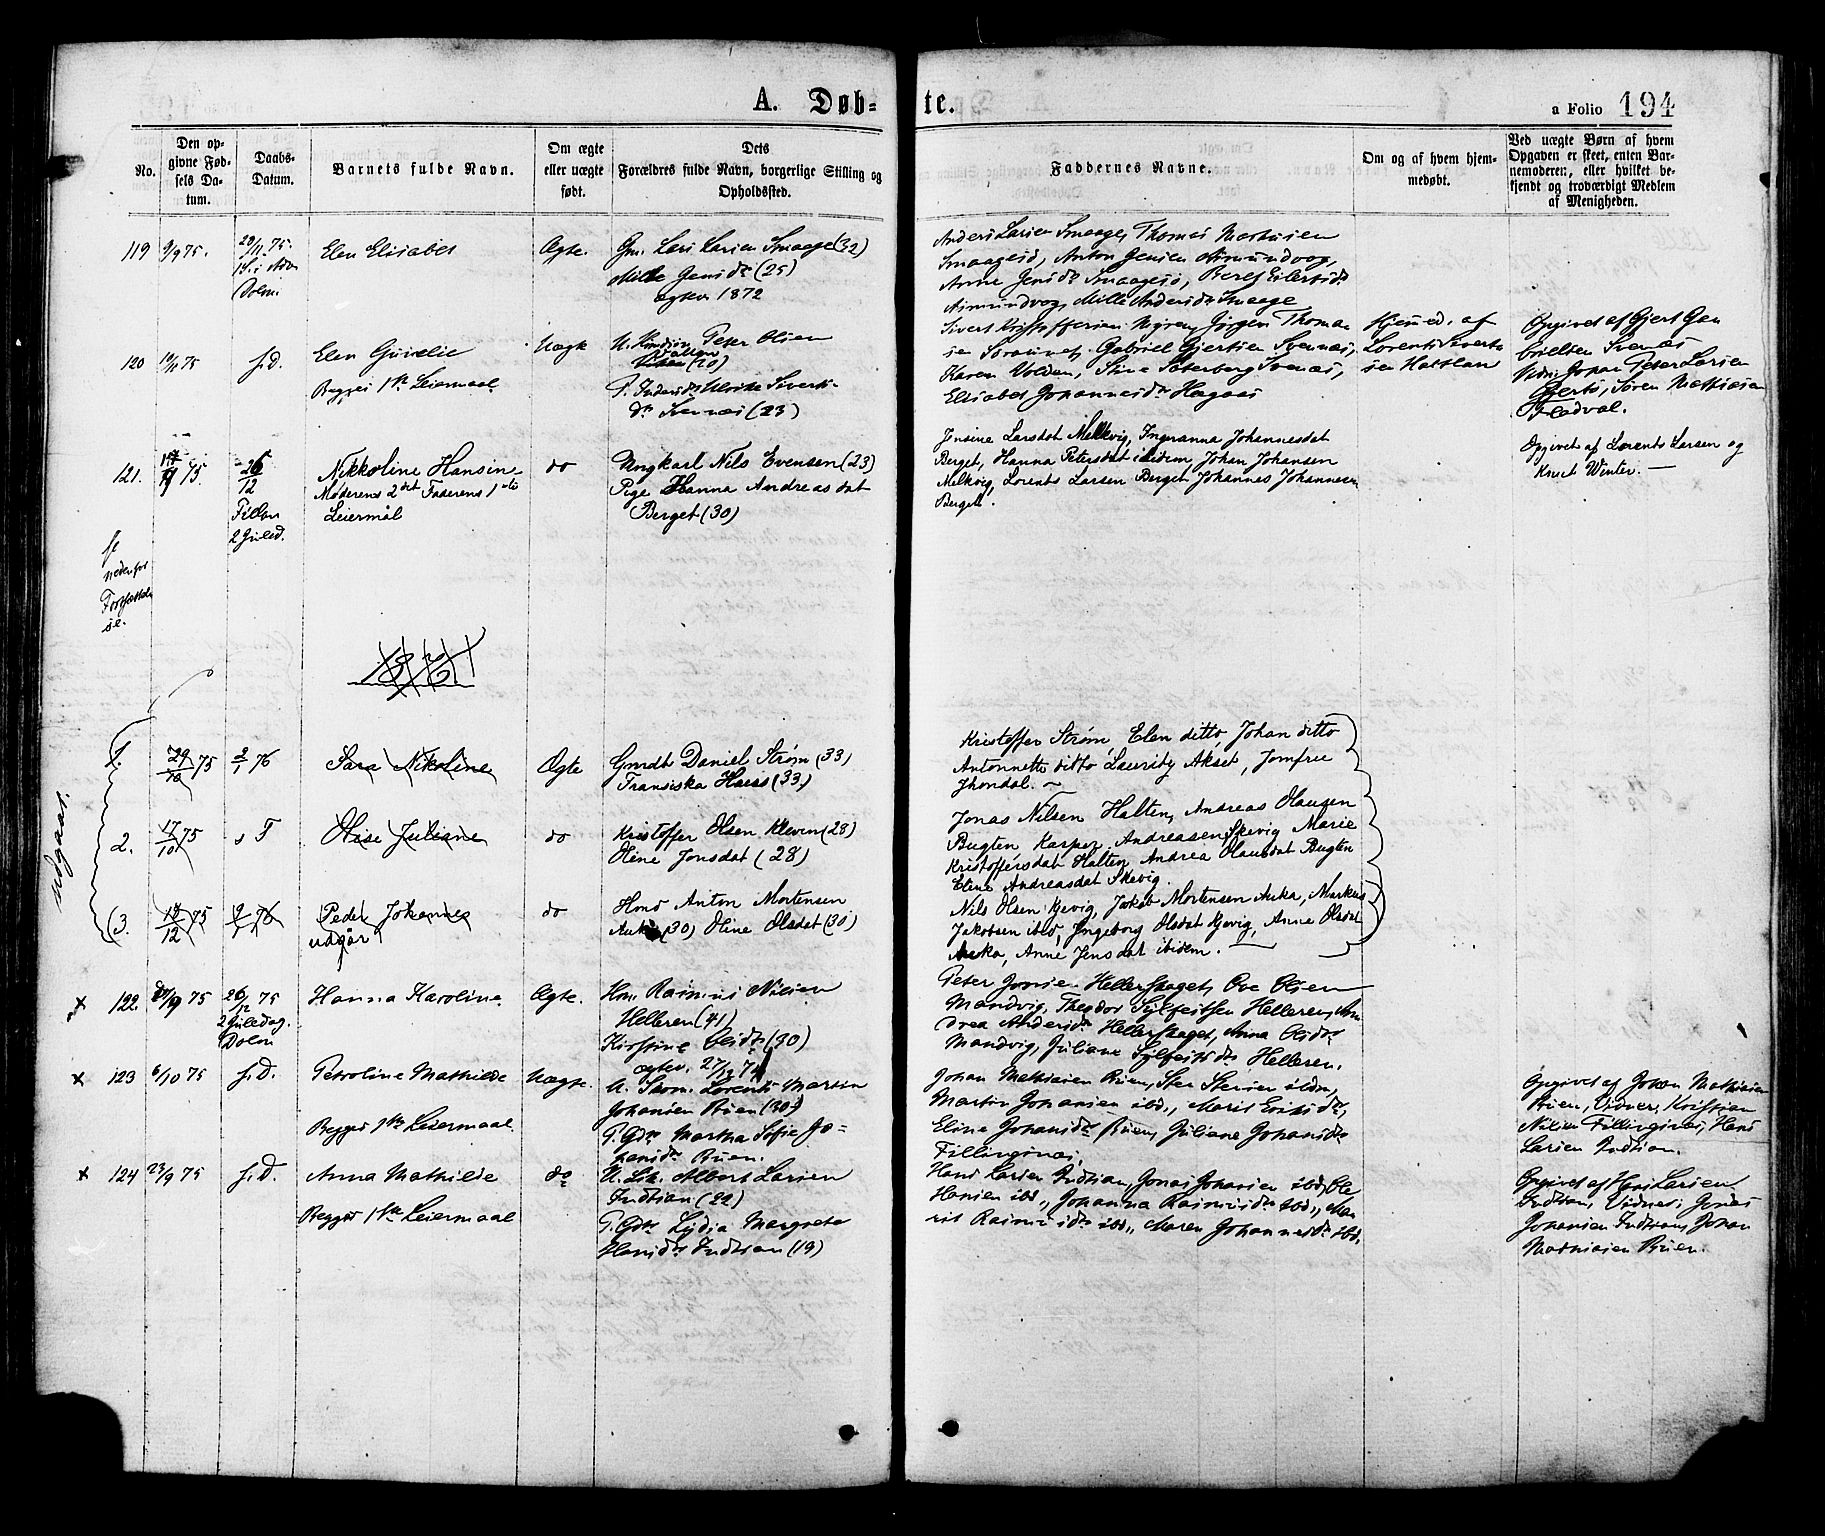 A. Døb-
te.
a Folio 194
No.
Den op-
givne Fød-
sels Da-
tum.
Daabs-
Datum.
Barnets fulde Navn.
Om ægte
eller uægte
født.
Dets
Forældres fulde Navn, borgerlige Stilling og
Opholdssted.
Faddernes Navne.
Om og af hvem hjem-
medøbt.
Ved uægte Børn af hvem
Opgaven er skeet, enten Bar-
nemoderen, eller hvilket be-
kjendt og troværdigt Medlem
af Menigheden.
119 9/9 75.
28/11 75.
Dolm
Elen Elisabet
Ægte.
Gm. Lars Larsen Smaage (32)
Jensdr (25)
ægtev. 1872
Anders Larsen Smaage, Thomas Mathisen
Smaagesø, Anton Jensen Asmundvog,
Anne Jensdr Smaagesø, Beret Eilertsdr
Asmundvog, Mille Andersdr Smaage
120
s. D.
Elen
Begges 1ste Leiermaal
Uægte
Peter Olsen
(20)
Ulrikke Siverts-
dr Svenæs (23)
Sivert Kristoffersen Myren, Jørgen Thoma-
sen Gabriel Gjertsen Svenæs,
Karen Volden, Stine Sæterberg Svenæs,
Elisabet Johannesdr Hagaas
Hjemmed. af
Lorents Siverts-
sen Hatlan
Opgivet af Gjert Ga-
brielsen Svenæs
Vidn: Johan Peter Larsen
Gjerts, Søren Mathiasen
Fladval.
121. 75.
26
12
Fillan
2 Juled.
Nikkoline Hansine
Moderens 2det Faderens 1ste
Leiermål
do
Ungkarl Nils Evensen (23)
Pige Hanna Andreasdat
Berget (30)
Jensine Larsdat Melkvig, Ingeranna Johannesdat
Berget, Hanna Petersdat ibidem Johan Johansen
Melkvig, Lorents Larsen Berget Johannes Johannesen
Berget.
Opgivet af Lorents Larsen og
Knut Winter. —
se
nedenfor
Fortsættel-
se.
1876
udgaar
1. 29/10 75 2/1 76 Sara Nikoline
Ægte
Gmdt Daniel Strøm (33)
Fransiska Hass (33)
Kristoffer Strøm Elen ditto Johan ditto
Antonnette ditto Lauritz Akset, Jomfru
Thondal. ~
2. 17/10 75 s F Olise Juliane
do
Kristoffer Olsen Kleven (28)
Oline Jonsdat (28)
Jonas Nilsen Halten, Andreas Olausen
Bugten Kasper Andreasen Skevig Marie
Kristoffersdat Halten Andrea Olausdat Bugten
Eline Andreasdat Skevig.
3. 75 9/1 76 Peder Johannes
udgår
do
Hmd Anton Mortensen
Auka (30) Oline Olsdat (30)
Nils Olsen Kjevig, Jakob Mortensen Auka, Markus
Jakobsen ibid, Ingeborg Olsdat Kjevig, Anne Olsdat
Auka, Anne Jensdat ibidem. —
x 122. 75
26/12 75
2 Juledag.
Dolm
Hanna Karoline
Ægte.
Hm. Rasmus Nilsen
Helleren (41)
Kirstine Olsdr (30)
ægtev. 27/12 74
Peter Hellerskaget, Ove Olsen
Mandvig, Theodor Sylfestsen Helleren, An-
drea Andersdr Hellerskaget, Anna Olsdr
Mandvig, Juliane Sylfestsdr Helleren.
x 123 6/10 75 s. D. Petroline Mathilde
Begges 1ste Leiermaal.
Uægte.
U. Skom. Lorents Martin
Johansen Bøen (30)
P. Gdr Martha Sofie Jo-
hansdr Bøen.
Johan Mathiasen Bøen, Sten Stensen ibdm,
Martin Johansen ibd., Marit Eriksdr,
Eline Johansdr Bøen, Juliane Johansdr
Fillingsnæs,
Opgivet af Johan Mathiasen
Bøen, Vidner, Kristian
Nilsen Fillingsnæs, Hans
Larsen Indtian.
x 124 23/9 75 s. D. Anna Mathilde
Begges 1ste Leiermaal
do
U. Albert Larsen
Indtian (22)
P. Gdr Lydia Margrete
Hansdr Indtian (19)
Hans Larsen Indtian, Jonas Johansen ibd, Ole
Hansen ibd., Johanna Rasmusdr ibd., Ma-
rit Rasmusdr ibd., Maren Johannesdr ibd.
Opgivet af Hans Larsen
Indtian, Vidnes, Jonas
Johansen Indtian, Johan
Mathiasen Bøen.